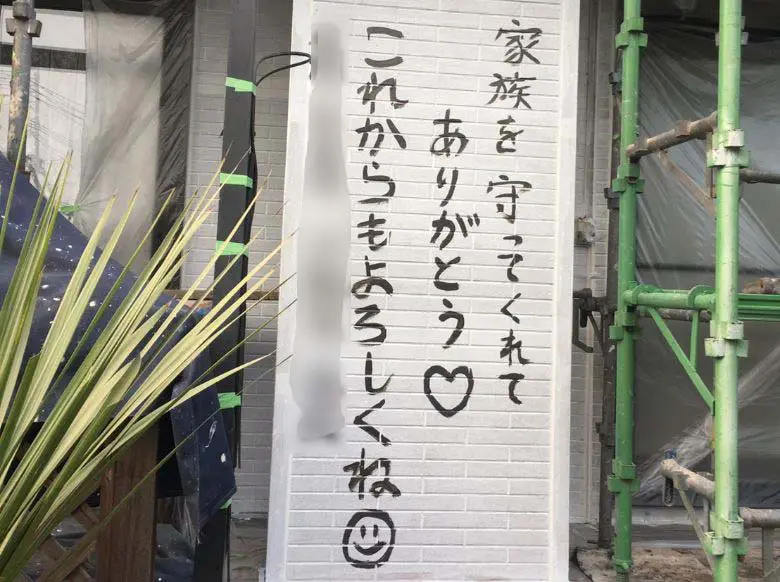 家族を守ってくれて
ありがとう♡
これからもよろしくね☺